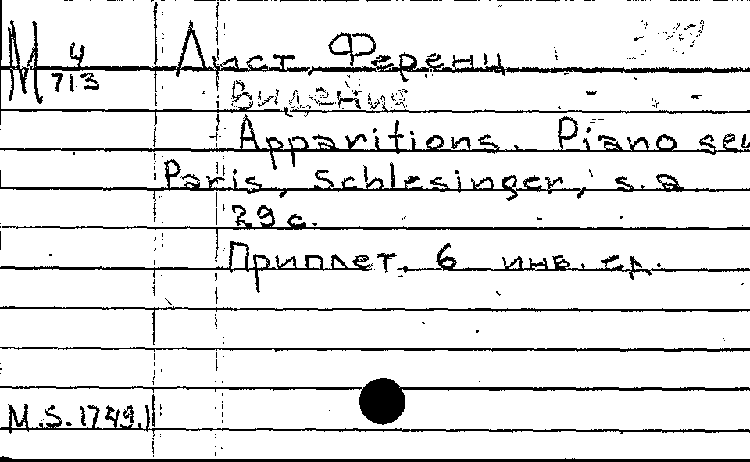 М 4/713
Лист, Ференц
Видения
Apparitions. Piano seu
Paris, Schlesinger, s.a.
29 с.
Приплет. 6 инв. ед.
M.S. 1749.1